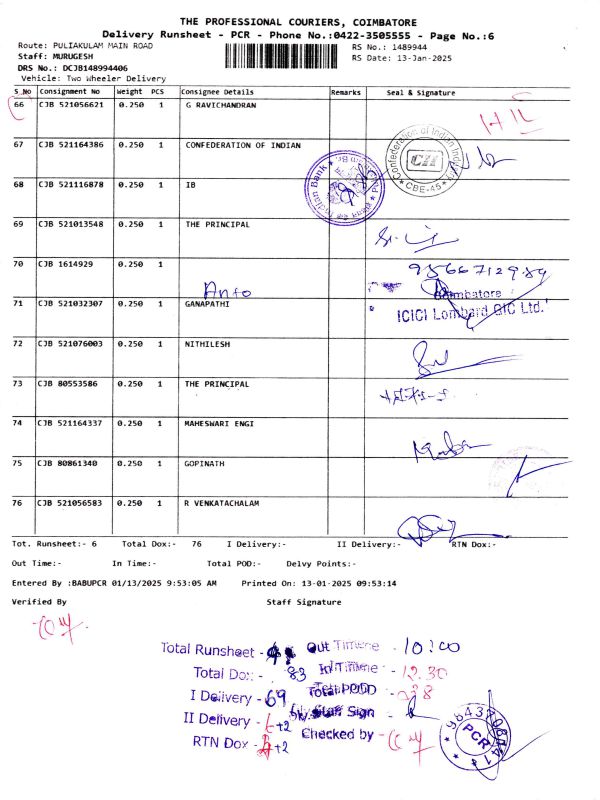 THE PROFESSIONAL COURIERS, COIMBATORE
Delivery Runsheet - PCR - Phone No.:0422-3505555 - Page No.:6
Route: PULIAKULAM MAIN ROAD RS No.: 1489944
Staff: MURUGESH RS Date: 13-Jan-2025
DRS No.: DCJB148994406
Vehicle: Two Wheeler Delivery
S No Consignment No Weight PCS Consignee Details Remarks Seal & Signature
66 CJB 521056621 0.250 1 G RAVICHANDRAN
67 CJB 521164386 0.250 1 CONFEDERATION OF INDIAN
Confederation of Indian
CII
CBE-45
68 CJB 521116878 0.250 1 IB
Indian Bank
69 CJB 521013548 0.250 1 THE PRINCIPAL
70 CJB 1614929 0.250 1
Anto
Coimbatore
71 CJB 521032307 0.250 1 GANAPATHI
ICICI Lombard GIC Ltd.
72 CJB 521076003 0.250 1 NITHILESH
73 CJB 80553586 0.250 1 THE PRINCIPAL
74 CJB 521164337 0.250 1 MAHESWARI ENGI
75 CJB 80861340 0.250 1 GOPINATH
76 CJB 521056583 0.250 1 R VENKATACHALAM
Tot. Runsheet:- 6 Total Dox:- 76 I Delivery:- II Delivery:- RTN Dox:-
Out Time:- In Time:- Total POD:- Delvy Points:-
Entered By :BABUPCR 01/13/2025 9:53:05 AM Printed On: 13-01-2025 09:53:14
Verified By Staff Signature
Total Runsheet - Out Time - 10:00
Total Dox - 83 In Time - 12.30
I Delivery - 69 Total POD -
II Delivery - +2 Staff Sign -
RTN Dox - +2 Checked by -
PCR